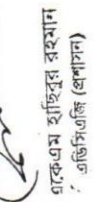 একেএম হাছিবুর রহমান
এডিসিএজি (প্রশাসন)